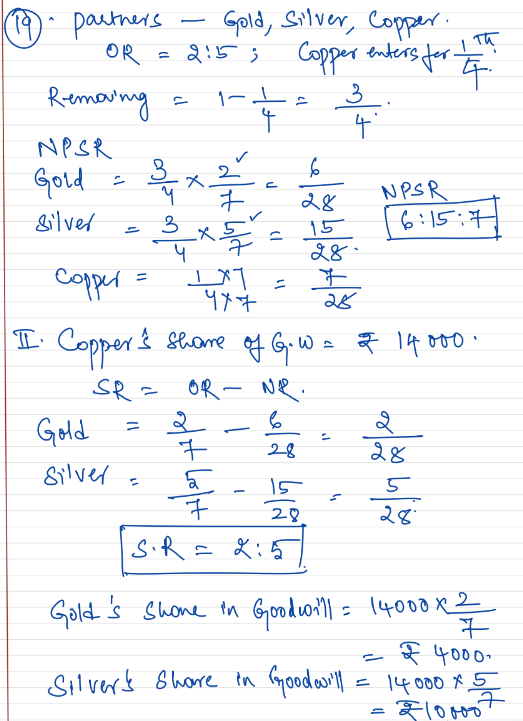 19. partners — Gold, Silver, Copper.
OR = 2:5 ; Copper enters for 1/4 th.
Remaining = 1 - 1/4 = 3/4.
NPSR
Gold = 3/4 × 2/7 ✓ = 6/28
Silver = 3/4 × 5/7 ✓ = 15/28.
NPSR
6:15:7
Copper = 1×7/4×7 = 7/28
II. Copper's share of G.W = ₹ 14000.
SR = OR - NR.
Gold = 2/7 - 6/28 = 2/28
Silver = 5/7 - 15/28 = 5/28.
S.R = 2:5
Gold's Share in Goodwill = 14000 × 2/7
= ₹ 4000.
Silver's Share in Goodwill = 14000 × 5/7
= ₹10000